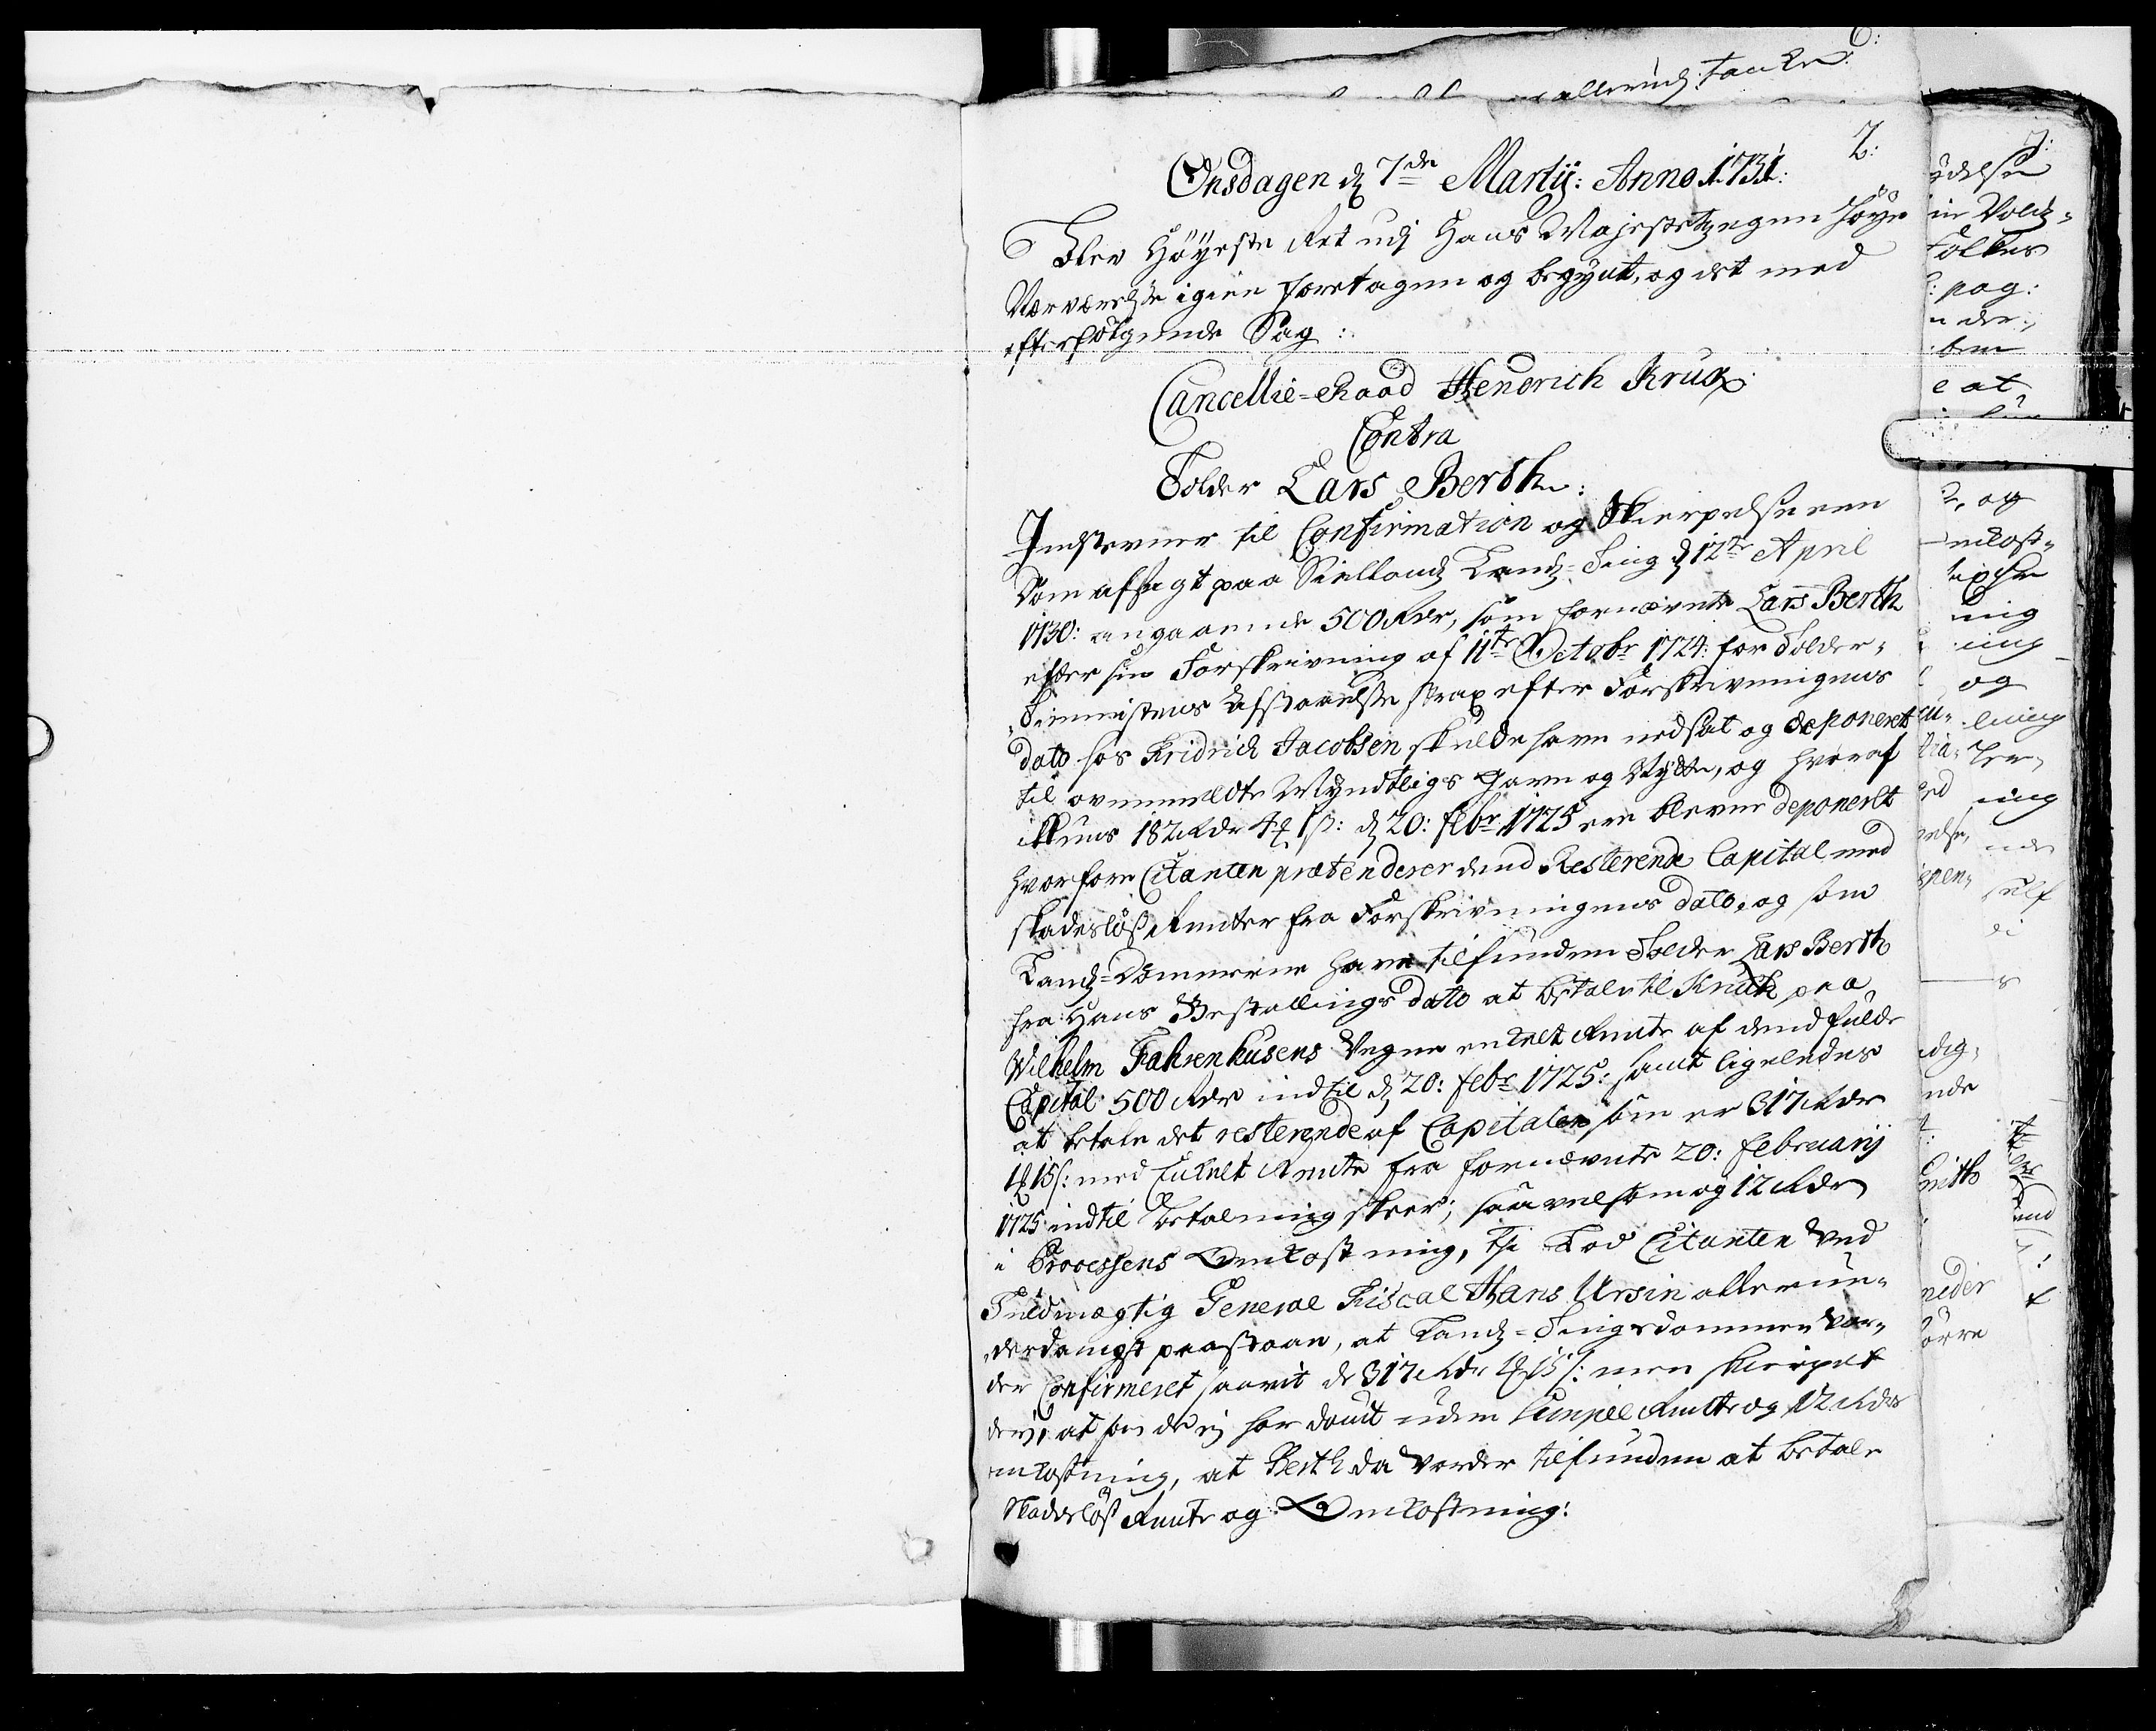 6:
allerund: tanke
7:
Onsdagen d. 7de Martij: Anno 1731:
Blev Höyeste Ret udj Hans Majestetz egen höye
Nærværelse igien foretagen og begynt, og det med
efterfölgende Sag:
Cancellie=Raad Hendrich
Contra
Tolder Lars Berth:
Indstevner til Confirmation og Skierpelse een
Dom afsagt paa Siellandz Landz=Ting d. 12te April
1730: angaaende 500 Rdr, som fornævnte Lars Berth
efter sin Forskrivning af 11te Octobr 1724: for Tolder=
Tiennistens Afstaaelse strax efter Forskrivningens
dato hos Fridrich Jacobsen skulde have nedsat og deponeret
til ovenmeldte Myndtligs Gavn og Nytte, og hvoraf
ikkuns 182 Rdr 4 1 s: d. 20: febr 1725 ere bleven deponeret
hvorfore Citanten prætenderer dend Resterende Capital med
skadeslös Renter fra Forskrivningens dato, og som
Landz=Dommerne have tilfunden Tolder Lars Berth
fra Hans Bestallings dato at betale til Knuth paa
Wilhelm Fahrenhusens Vegne enkelt Rente af dend fulde
Capital 500 Rdr indtil d. 20: febr 1725: samt ligeledes
at betale det resterende af Capitalen som er 317 Rdr
1 15 s: med Enkelt Rente fra fornævnte 20: Februarij
1725 indtil Betalning skeer; saavelsom og 12 Rdr
i Processens Omkostning, Thi Lod Citanten ved
Fuldmægtig General Fiscal Hans Ursin allerun=
derdanigst paastaae, at Landz=Tings dommen vor=
der Confirmeret saavit de 317 Rdr 1 15 s: men skierpet
deri, at som de ej har dömt uden simpel Rente og 12 Rdr
omkostning, at Berth da vorder tilfunden at betale
Skadeslös Rente og Omkostning: